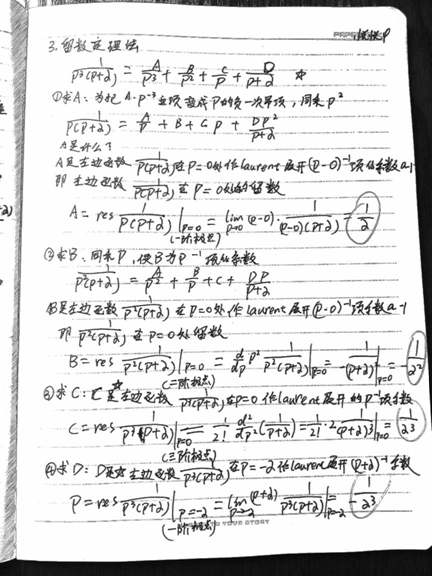 3. 留数定理法
1/(p³(p+2)) = A/p³ + B/p² + C/p + D/(p+2) ☆
①求A: 为把 A·p⁻³ 这项变成 P的负一次幂项, 同乘 p²
1/(p(p+2)) = A/p + B + Cp + Dp²/(p+2)
A是什么?
A是左边函数 1/(p(p+2)) 在 p=0处作Laurent展开(p-0)⁻¹项系数a-1
即 左边函数 1/(p(p+2)) 在 p=0处的留数
A = res 1/(p(p+2)) |p=0 = lim p→0 (p-0)· 1/((p-0)(p+2)) = 1/2
(一阶极点)
②求B: 同乘P, 使B为 p⁻¹ 项的系数
1/(p²(p+2)) = A/p² + B/p + C + Dp/(p+2)
B是左边函数 1/(p²(p+2)) 在p=0处作Laurent展开(p-0)⁻¹项系数a-1
即 1/(p²(p+2)) 在p=0处留数
B = res 1/(p²(p+2)) |p=0 = d/dp p² 1/(p²(p+2)) |p=0 = -1/(p+2)² |p=0 = -1/2²
(二阶极点)
③求C: C是左边函数 1/(p³(p+2)) 在p=0作Laurent展开的p⁻¹项系数
C = res 1/(p³(p+2)) |p=0 = 1/2! d²/dp² (1/(p+2)) = 1/2! · 2 1/(p+2)³ |p=0 = 1/2³
(三阶极点)
④求D: D是左边函数 1/(p³(p+2)) 在p=-2作Laurent展开(p+2)⁻¹系数
D = res 1/(p³(p+2)) |p=-2 = lim p→-2 (p+2) 1/(p³(p+2)) |p=-2 = -1/2³
(一阶极点)
YOUR STORY